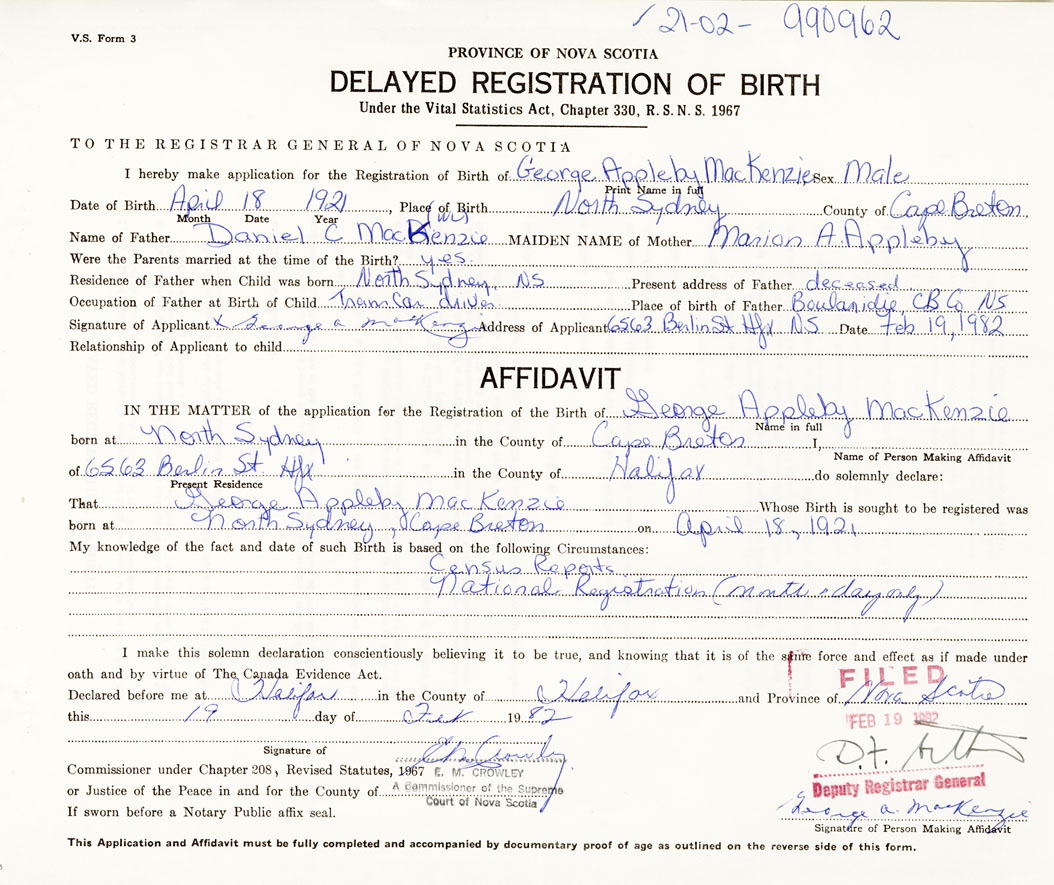 21-02- 990962
V.S. Form 3
PROVINCE OF NOVA SCOTIA
DELAYED REGISTRATION OF BIRTH
Under the Vital Statistics Act, Chapter 330, R.S.N.S. 1967
TO THE REGISTRAR GENERAL OF NOVA SCOTIA
I hereby make application for the Registration of Birth of George Appleby MacKenzie Sex Male
Print Name in full
Date of Birth April 18 1921, Place of Birth North Sydney County of Cape Breton,
Month Date Year
Name of Father Daniel C MacKenzie MAIDEN NAME of Mother Marion A Appleby
Were the Parents married at the time of the Birth? yes
Residence of Father when Child was born North Sydney, NS Present address of Father deceased
Occupation of Father at Birth of Child Tram Car driver Place of birth of Father Boulardie CB Co NS
Signature of Applicant x George a MacKenzie Address of Applicant 6563 Berlin St Hfx NS Date Feb 19, 1982
Relationship of Applicant to child
AFFIDAVIT
IN THE MATTER of the application for the Registration of the Birth of George Appleby MacKenzie
Name in full
born at North Sydney in the County of Cape Breton I,
Name of Person Making Affidavit
of 6563 Berlin St Hfx in the County of Halifax do solemnly declare:
Present Residence
That George Appleby MacKenzie Whose Birth is sought to be registered was
born at North Sydney, Cape Breton on April 18, 1921
My knowledge of the fact and date of such Birth is based on the following Circumstances:
Census Reports
National Registration (month & day only)
I make this solemn declaration conscientiously believing it to be true, and knowing that it is of the same force and effect as if made under
oath and by virtue of The Canada Evidence Act.
FILED
Declared before me at Halifax in the County of Halifax and Province of Nova Scotia
this 19 day of Feb 1982
FEB 19 1982
Signature of
Commissioner under Chapter 208, Revised Statutes, 1967 E. M. CROWLEY
or Justice of the Peace in and for the County of A Commissioner of the Supreme
Court of Nova Scotia
Deputy Registrar General
If sworn before a Notary Public affix seal.
George a. MacKenzie
Signature of Person Making Affidavit
This Application and Affidavit must be fully completed and accompanied by documentary proof of age as outlined on the reverse side of this form.